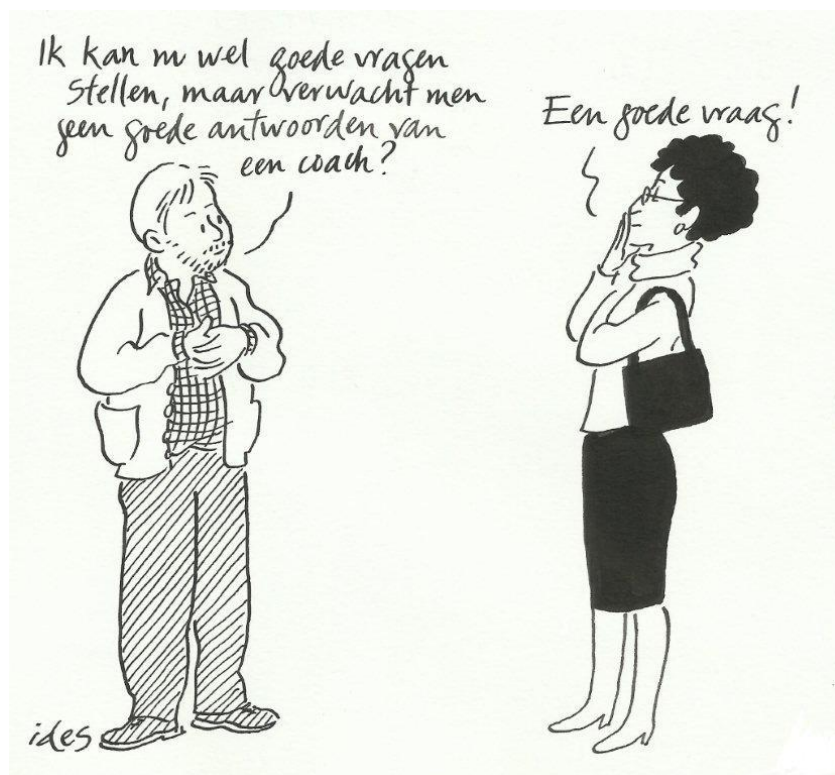 Ik kan nu wel goede vragen
stellen, maar verwacht men
geen goede antwoorden van
een coach?
Een goede vraag!
ides